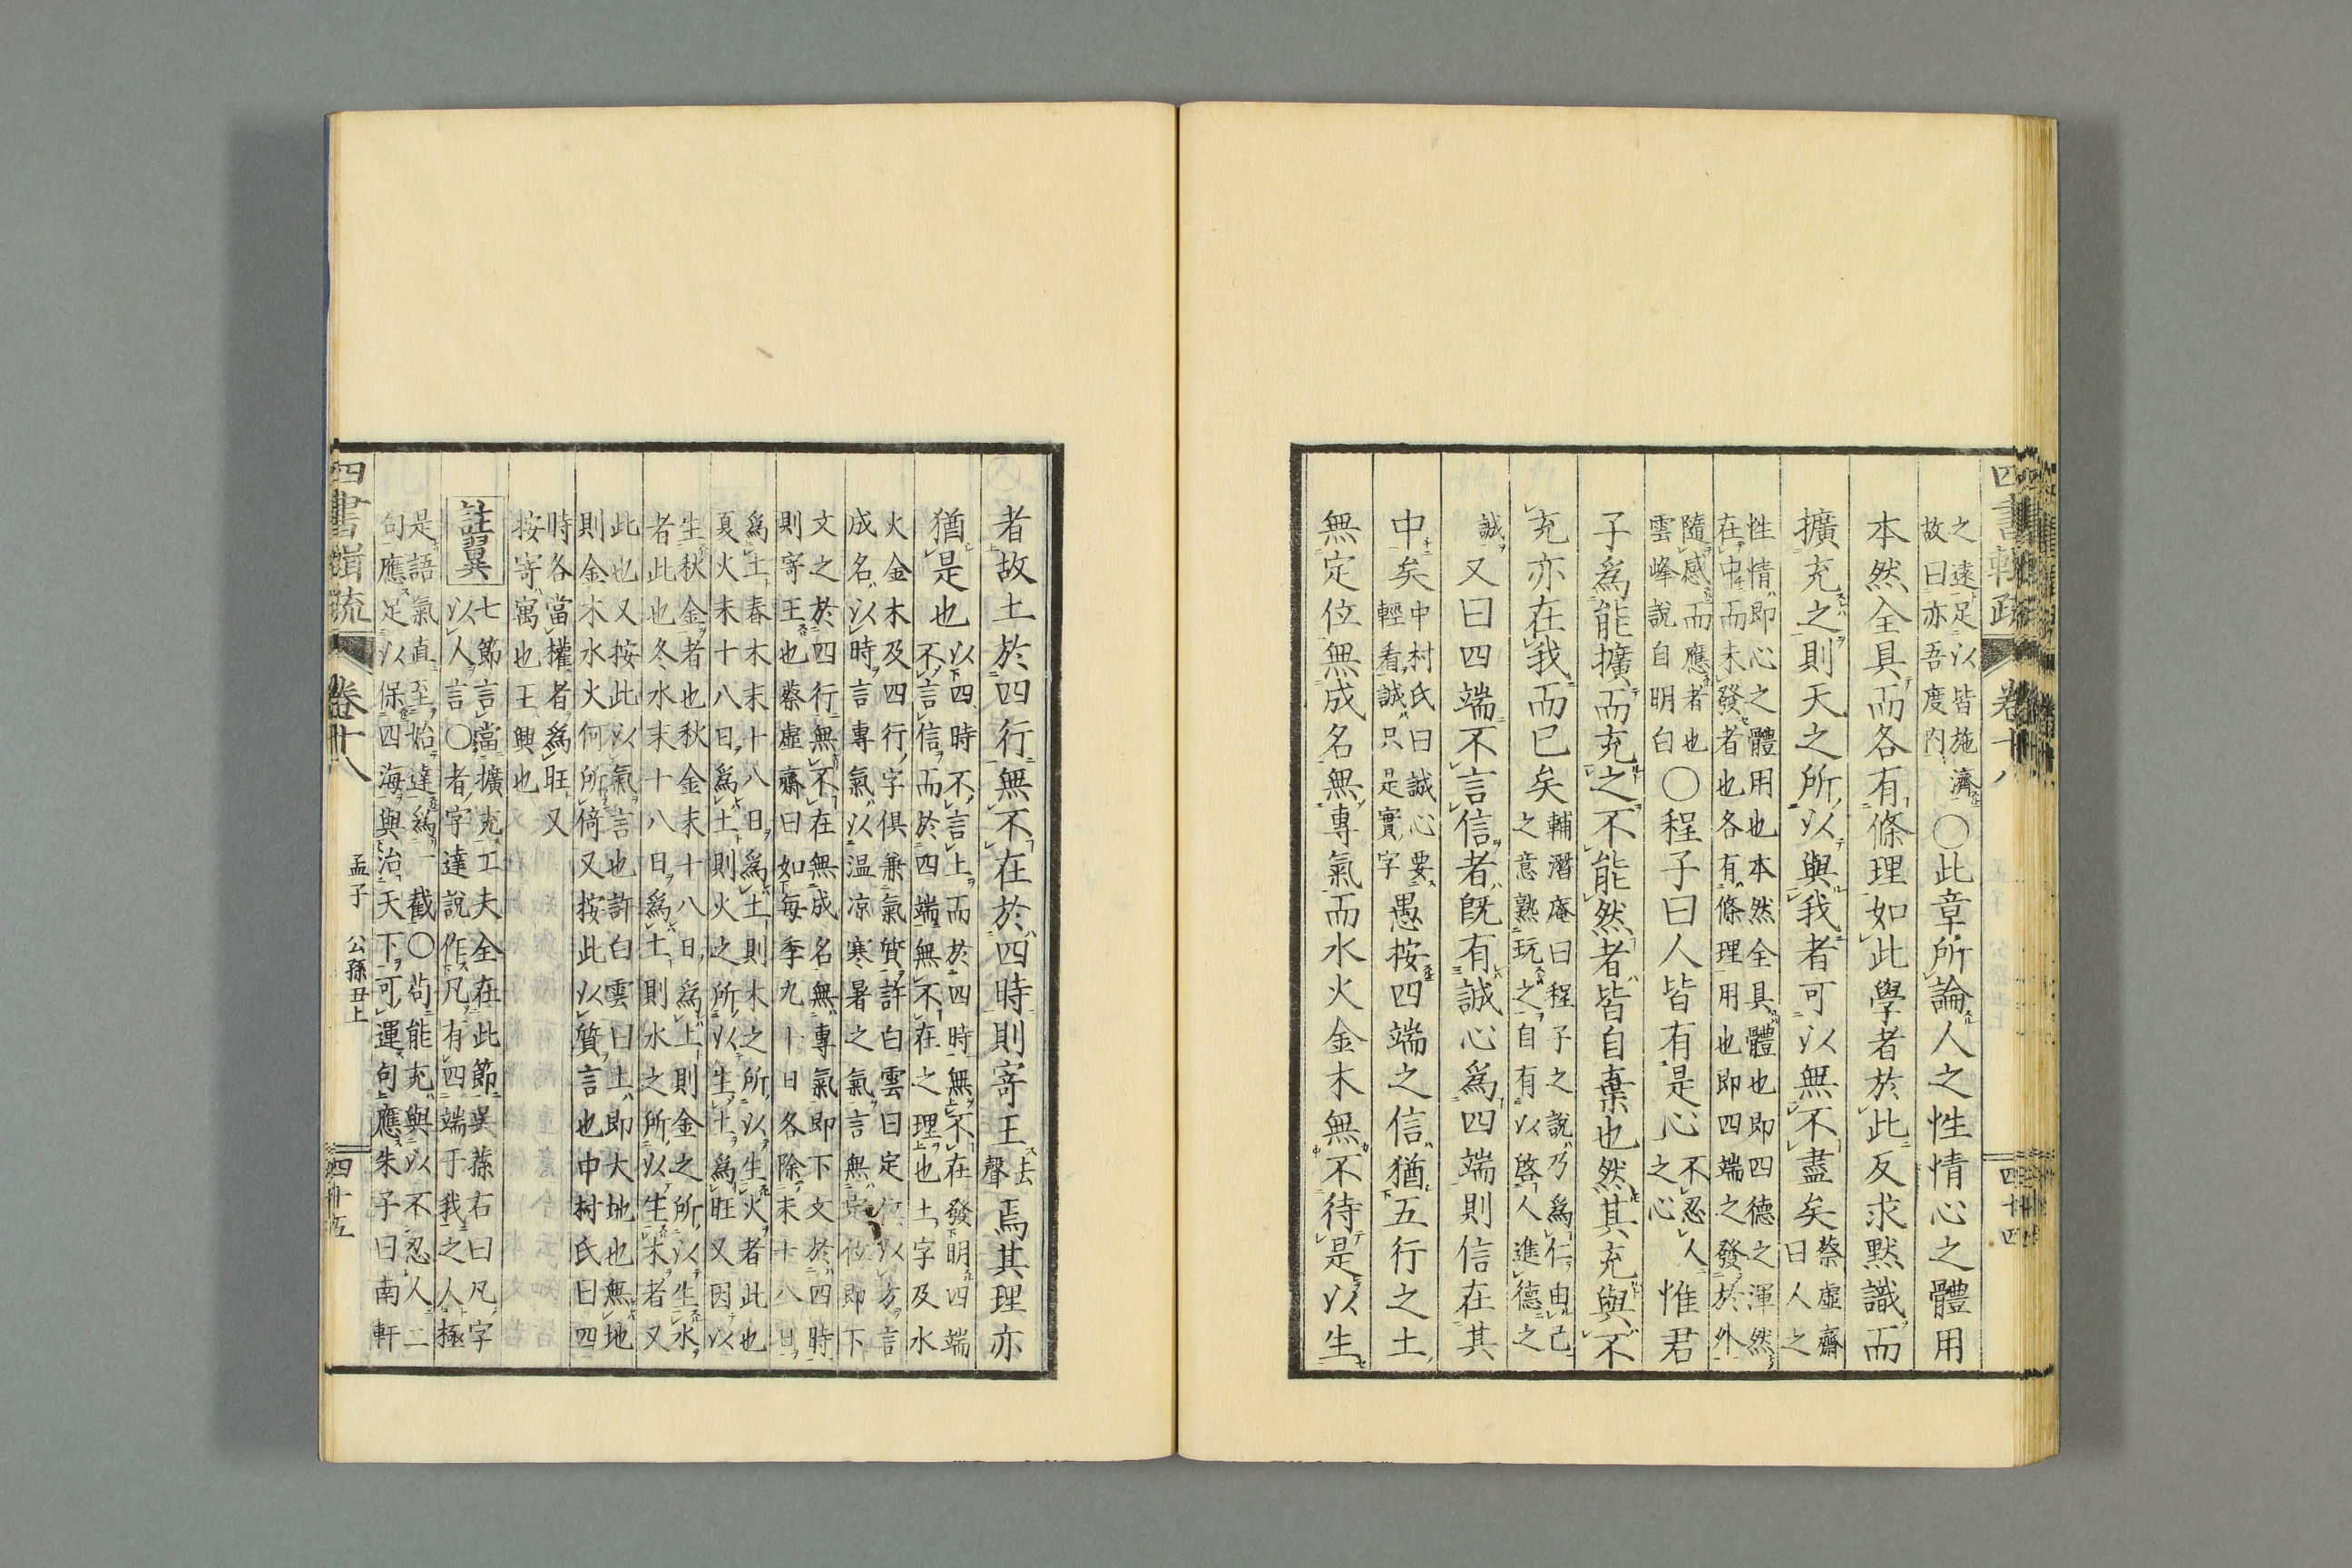 四書輯疏
卷十八
四十四
之遠足以皆施濟
故曰亦吾度內
○此章所論人之性情心之體用
本然全具而各有條理如此學者於此反求默識而
擴充之則天之所以與我者可以無不盡矣
蔡虛齋
曰人之
性情即心之體用也本然全具體也即四德之渾然
在中而未發者也各有條理用也即四端之發於外
隨感而應者也
雲峰說自明白
○程子曰人皆有是心
不忍人
之心
惟君
子爲能擴而充之不能然者皆自棄也然其充與不
充亦在我而已矣
輔潛庵曰程子之說乃爲仁由己
之意熟玩之自有以啓人進德之
誠
又曰四端不言信者旣有誠心爲四端則信在其
中矣
中村氏曰誠心要
輕看誠只是實字
愚按四端之信猶五行之土
無定位無成名無專氣而水火金木無不待是以生
者故土於四行無不在於四時則寄王
去
聲
焉其理亦
猶是也
以四時不言土而於四時無不在發明四端
不言信而於四端無不在之理也土字及水
火金木及四行字俱兼氣質許白雲曰定位以方言
成名以時言專氣以温凉寒暑之氣言無定位即下
文之於四行無不在無成名無專氣即下文於四時
則寄王也蔡虛齋曰如每季九十日各除末十八日
爲土春木末十八日爲土則木之所以生火者此也
夏火末十八日爲土則火之所以生土爲旺又因以
生秋金者也秋金末十八日爲土則金之所以生水
者此也冬水末十八日爲土則水之所以生木者又
此也又按此以氣言也許白雲曰土即大地也無地
則金木水火何所倚又按此以質言也中村氏曰四
時各當權者爲旺又
按寄寓也王興也
註翼
七節言當擴充工夫全在此節吳蓀右曰凡字
以人言○者字達說作凡有四端于我之人極
是語氣直至始達爲一截○苟能充與以不忍人二
句應足以保四海與治天下可運句應朱子曰南軒
四書輯疏
卷十八
孟子
公孫丑上
四十五